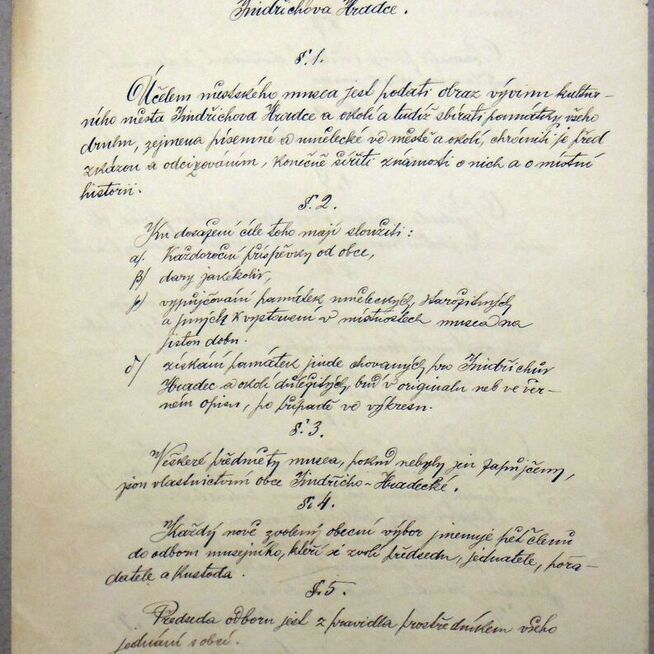 Jindřichova Hradce.
§. 1.
Účelem městského musea jest podati obraz vývinu kultur-
ního města Jindřichova Hradce a okolí a tudíž sbírati památky všeho
druhu, zejmena písemné a umělecké ve městě a okolí, chrániti je před
zkázou a odcizováním, konečně šířiti známosti o nich a o místní
historii.
§. 2.
Ku dosažení cíle toho mají sloužiti:
α). Každoroční příspěvky od obce,
β) dary jakékoliv,
γ) vypůjčování památek uměleckých, starožitných
a jiných k vystavení v místnostech musea na
jistou dobu.
δ) získání památek jinde chovaných pro Jindřichův
Hradec a okolí důležitých buď v originalu neb ve věr-
ném opisu, po případě ve výkresu.
§. 3.
Veškeré předměty musea, pokud nebyly jen zapůjčeny,
jsou vlastnictvím obce Jindřicho-Hradecké.
§. 4.
Každý nově zvolený obecní výbor jmenuje pět členů
do odboru musejního, kteří si zvolí předsedu, jednatele, pořa-
datele a kustoda.
§. 5.
Předseda odboru jest z pravidla prostředníkem všeho
jednání s obcí.